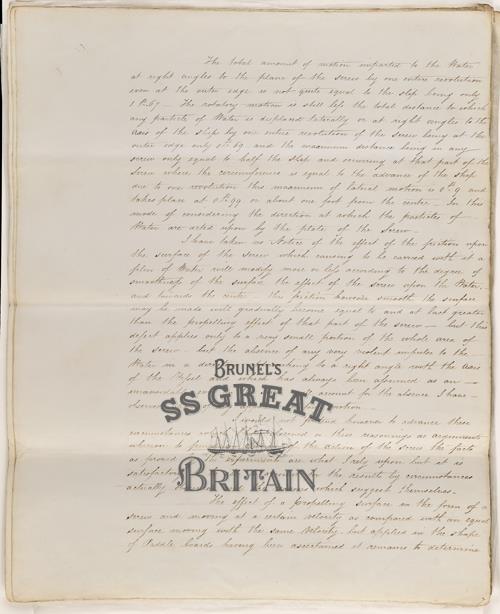 The total amount of motion imparted to the Water
at right angles to the plane of the screw by one entire revolution
even at the outer edge is not quite equal to the slip being only
1 ft. 67 — The rotatory motion is still less the total distance to which
any particle of Water is displaced laterally or at right angles to the
axis of the ship by one entire revolution of the screw being at the
outer edge only and the maximum distance being in any
screw only equal to half the slip and occurring at that part of the
screw where the circumference is equal to the advance of the ship
due to one revolution this maximum of lateral motion is
takes place at or about one foot from the centre — In this
mode of considering the direction at which the particles of
Water are acted upon by the plate of the Screw —
I have taken no Notice of the effect of the friction upon
the surface of the screw which causing to be carried with it a
film of Water will modify more or less according to the degree of
smoothness of the surface the effect of the screw upon the Water,
and towards the centre — the friction however smooth the surface
may be made will gradually become equal to and at last greater
than the propelling effect of that part of the screw — but this
defect applies only to a very small portion of the whole area of
the screw — but the absence of any very violent impulse to the
Water in a to a right angle with the axis
of the Vessel and which has always been assumed as an —
account for the absence I have —
BRUNEL'S
SS GREAT
BRITAIN
would not however to advance these
circumstances or these reasonings as arguments
whereon to the action of the screw the facts
as proved experiments are what I rely upon but it is
satisfactory the result by circumstances
actually which suggest themselves.
The effect of a propelling surface in the form of a
screw and moving at a certain velocity as compared with an equal
surface moving with the same Velocity, but applied in the shape
of Paddle boards having been ascertained it remains to determine